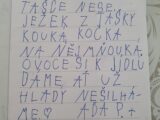 TAŠCE NEBE
JEŽEK Z TAŠKY
KOUKÁ, KOČKA
NA NĚJ MŇOUKÁ.
OVOCE SI K JÍDLU
DÁME AŤ UŽ
HLADY NEŠILHÁ-
ME ADA P.